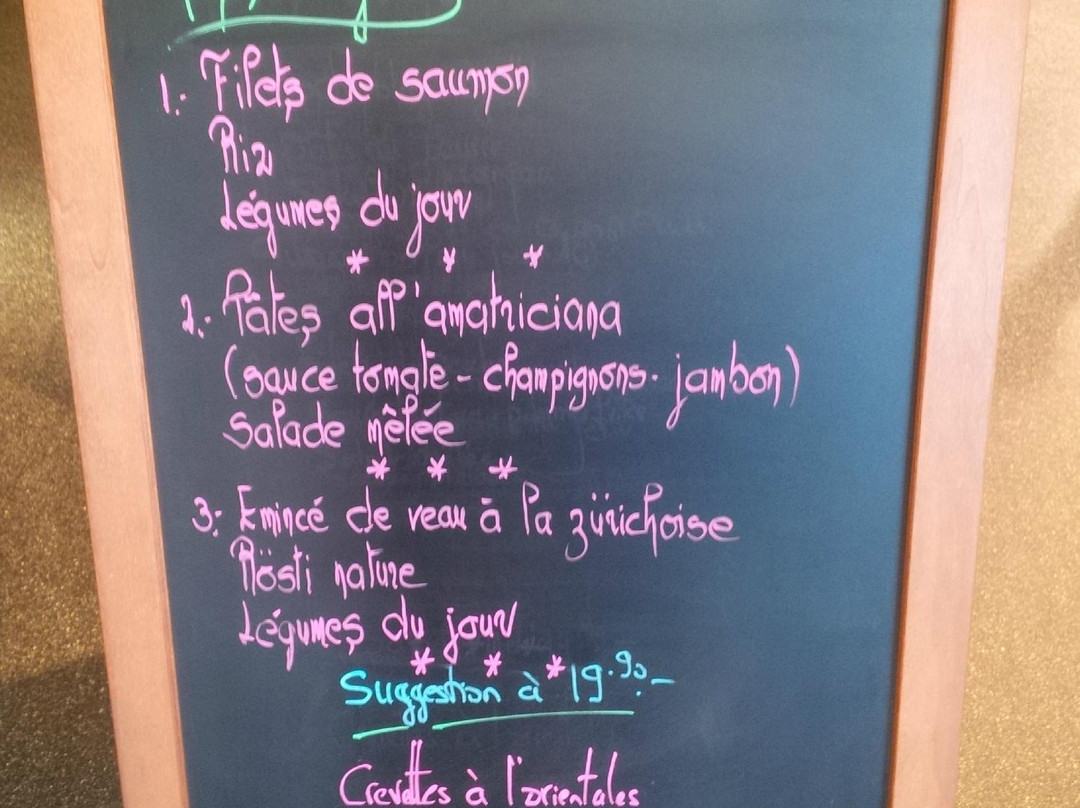 1.- Filets de saumon
Riz
Légumes du jour
* * *
2.- Pâtes all'amatriciana
(sauce tomate - champignons - jambon)
Salade mêlée
* * *
3.- Emincé de veau à la zürichoise
Rösti nature
Légumes du jour
* * *
Suggestion à 19.90.-
Crevettes à l'orientales